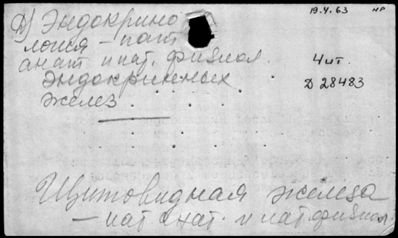 19.4.63 нр
Д) Эндокрино
логия – пат
анат и пат. физиол.
4 шт
Эндокринных
Д 28483
желез
Щитовидная железа
– пат анат. и пат физиол.